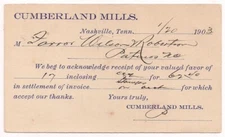 CUMBERLAND MILLS.
Nashville, Tenn. 1/20 1903
M Farrar Wilson Robertson
We beg to acknowledge receipt of your valued favor of
17 inclosing for
in settlement of invoice in for which
accept our thanks. Yours truly,
CUMBERLAND MILLS.